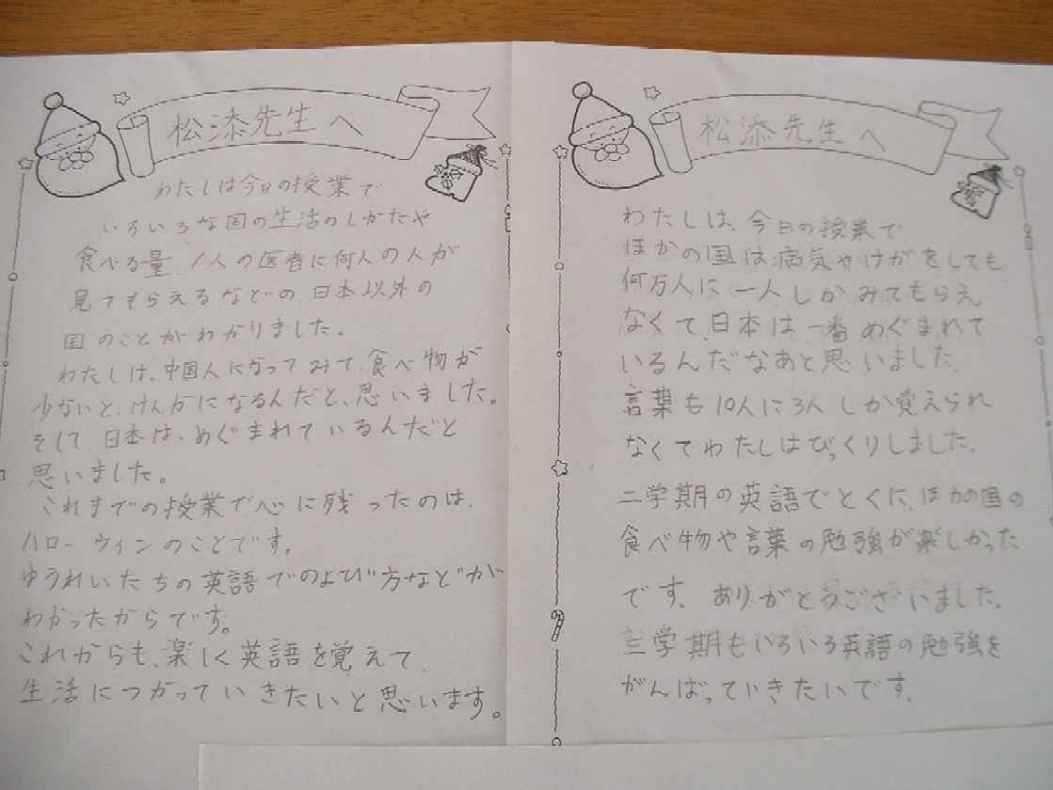 松添先生へ
わたしは今日の授業で
いろいろな国の生活のしかたや
食べる量、1人の医者に何人の人が
見てもらえるなどの、日本以外の
国のことがわかりました。
わたしは、中国人になってみて、食べ物が
少ないと、けんかになるんだと、思いました。
そして、日本は、めぐまれているんだと
思いました。
これまでの授業で心に残ったのは、
ハローウィンのことです。
ゆうれいたちの英語でのよび方などが
わかったからです。
これからも、楽しく英語を覚えて、
生活につかっていきたいと思います。
松添先生へ
わたしは、今日の授業で
ほかの国は病気やけがをしても
何万人に、一人しかみてもらえ
なくて、日本は一番めぐまれて
いるんだなあと思いました。
言葉も10人に3人しか覚えられ
なくてわたしはびっくりしました。
二学期の英語でとくに、ほかの国の
食べ物や言葉の勉強が楽しかった
です。ありがとうございました。
三学期もいろいろ英語の勉強を
がんばっていきたいです。